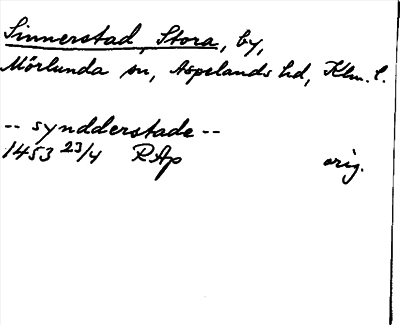 Sinnerstad, Stora, by,
Mörlunda sn, Aspelands hd, Klm. l.
-- syndderstade --
1453 23/4 RAp orig.